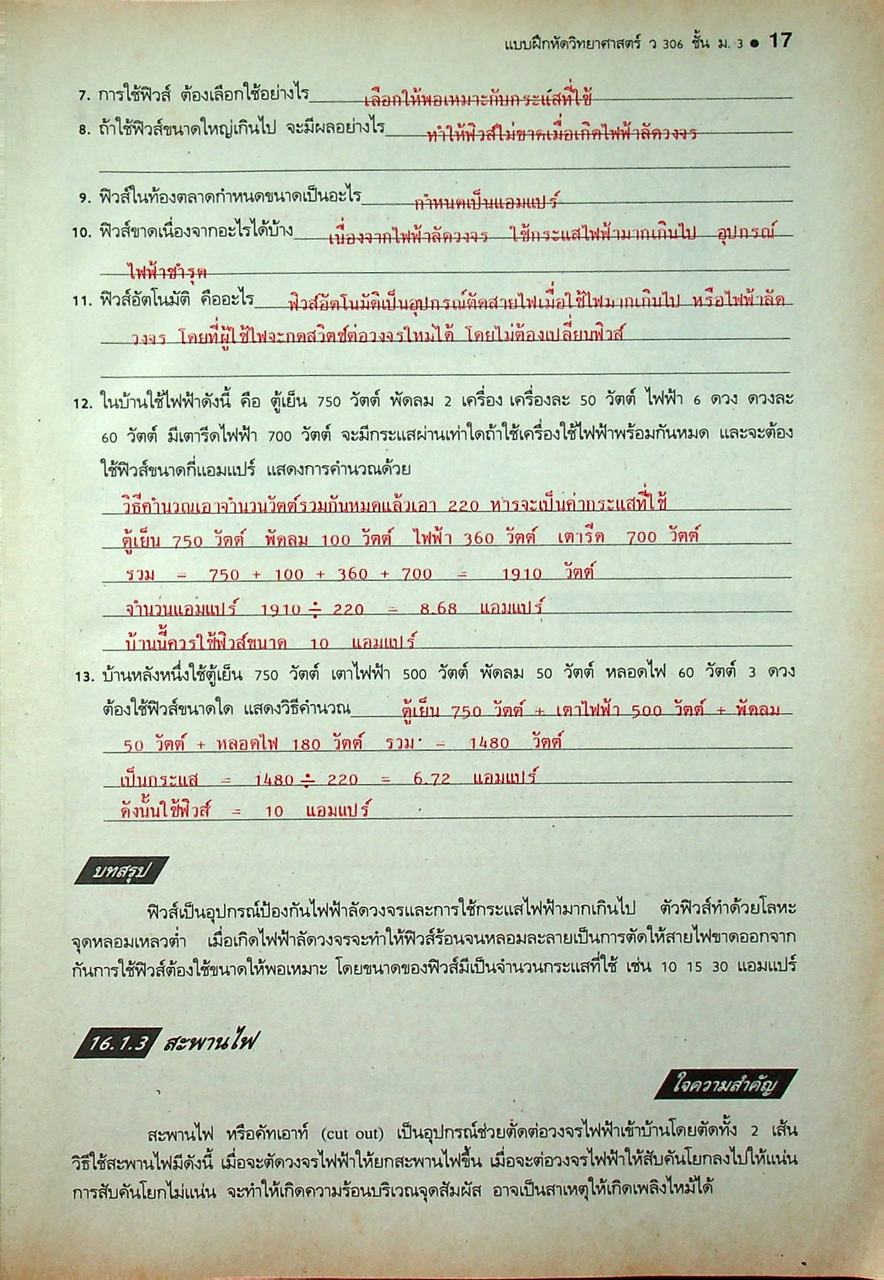 แบบฝึกหัดวิทยาศาสตร์ ว 306 ชั้น ม. 3 ● 17
7. การใช้ฟิวส์ ต้องเลือกใช้อย่างไร เลือกให้พอเหมาะกับกระแสที่ใช้
8. ถ้าใช้ฟิวส์ขนาดใหญ่เกินไป จะมีผลอย่างไร ทำให้ฟิวส์ไม่ขาดเมื่อเกิดไฟฟ้าลัดวงจร
9. ฟิวส์ในท้องตลาดกำหนดขนาดเป็นอะไร กำหนดเป็นแอมแปร์
10. ฟิวส์ขาดเนื่องจากอะไรได้บ้าง เนื่องจากไฟฟ้าลัดวงจร ใช้กระแสไฟฟ้ามากเกินไป อุปกรณ์
ไฟฟ้าชำรุด
11. ฟิวส์อัตโนมัติ คืออะไร ฟิวส์อัตโนมัติเป็นอุปกรณ์ตัดสายไฟเมื่อใช้ไฟมากเกินไป หรือไฟฟ้าลัด
วงจร โดยที่ผู้ใช้ไฟจะกดสวิตช์ต่อวงจรใหม่ได้ โดยไม่ต้องเปลี่ยนฟิวส์
12. ในบ้านใช้ไฟฟ้าดังนี้ คือ ตู้เย็น 750 วัตต์ พัดลม 2 เครื่อง เครื่องละ 50 วัตต์ ไฟฟ้า 6 ดวง ดวงละ
60 วัตต์ มีเตารีดไฟฟ้า 700 วัตต์ จะมีกระแสผ่านเท่าใดถ้าใช้เครื่องใช้ไฟฟ้าพร้อมกันหมด และจะต้อง
ใช้ฟิวส์ขนาดกี่แอมแปร์ แสดงการคำนวณด้วย
วิธีคำนวณเอาจำนวนวัตต์รวมกันหมดแล้วเอา 220 หารจะเป็นค่ากระแสที่ใช้
ตู้เย็น 750 วัตต์ พัดลม 100 วัตต์ ไฟฟ้า 360 วัตต์ เตารีด 700 วัตต์
รวม = 750 + 100 + 360 + 700 = 1910 วัตต์
จำนวนแอมแปร์ 1910 ÷ 220 = 8.68 แอมแปร์
บ้านนี้ควรใช้ฟิวส์ขนาด 10 แอมแปร์
13. บ้านหลังหนึ่งใช้ตู้เย็น 750 วัตต์ เตาไฟฟ้า 500 วัตต์ พัดลม 50 วัตต์ หลอดไฟ 60 วัตต์ 3 ดวง
ต้องใช้ฟิวส์ขนาดใด แสดงวิธีคำนวณ ตู้เย็น 750 วัตต์ + เตาไฟฟ้า 500 วัตต์ + พัดลม
50 วัตต์ + หลอดไฟ 180 วัตต์ รวม = 1480 วัตต์
เป็นกระแส = 1480 ÷ 220 = 6.72 แอมแปร์
ดังนั้นใช้ฟิวส์ = 10 แอมแปร์
บทสรุป
ฟิวส์เป็นอุปกรณ์ป้องกันไฟฟ้าลัดวงจรและการใช้กระแสไฟฟ้ามากเกินไป ตัวฟิวส์ทำด้วยโลหะ
จุดหลอมเหลวต่ำ เมื่อเกิดไฟฟ้าลัดวงจรจะทำให้ฟิวส์ร้อนจนหลอมละลายเป็นการตัดให้สายไฟขาดออกจาก
กันการใช้ฟิวส์ต้องใช้ขนาดให้พอเหมาะ โดยขนาดของฟิวส์มีเป็นจำนวนกระแสที่ใช้ เช่น 10 15 30 แอมแปร์
16.1.3 สะพานไฟ
ใจความสำคัญ
สะพานไฟ หรือคัทเอาท์ (cut out) เป็นอุปกรณ์ช่วยตัดต่อวงจรไฟฟ้าเข้าบ้านโดยตัดทั้ง 2 เส้น
วิธีใช้สะพานไฟมีดังนี้ เมื่อจะตัดวงจรไฟฟ้าให้ยกสะพานไฟขึ้น เมื่อจะต่อวงจรไฟฟ้าให้สับคันโยกลงไปให้แน่น
การสับคันโยกไม่แน่น จะทำให้เกิดความร้อนบริเวณจุดสัมผัส อาจเป็นสาเหตุให้เกิดเพลิงไหม้ได้